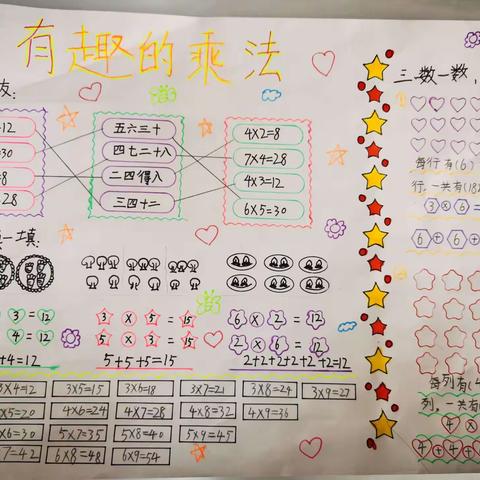 有趣的乘法
友:
=12
=30
=8
=28
五六三十
四七二十八
二四得八
三四十二
4×2=8
7×4=28
4×3=12
6×5=30
填一填:
3=12
4=12
+4=12
3×5=15
5×3=15
5+5+5=15
6×2=12
2×6=12
2+2+2+2+2+2=12
3×4=12
3×5=15
3×6=18
3×7=21
3×8=24
3×9=27
×5=20
4×6=24
4×7=28
4×8=32
4×9=36
×6=30
5×7=35
5×8=40
5×9=45
×7=42
6×8=48
6×9=54
三、数一数,
①
每行有(6)
行,一共有(18)
3×6=
6+6+
②
每列有(4
列,一共有
4×
4+4+4